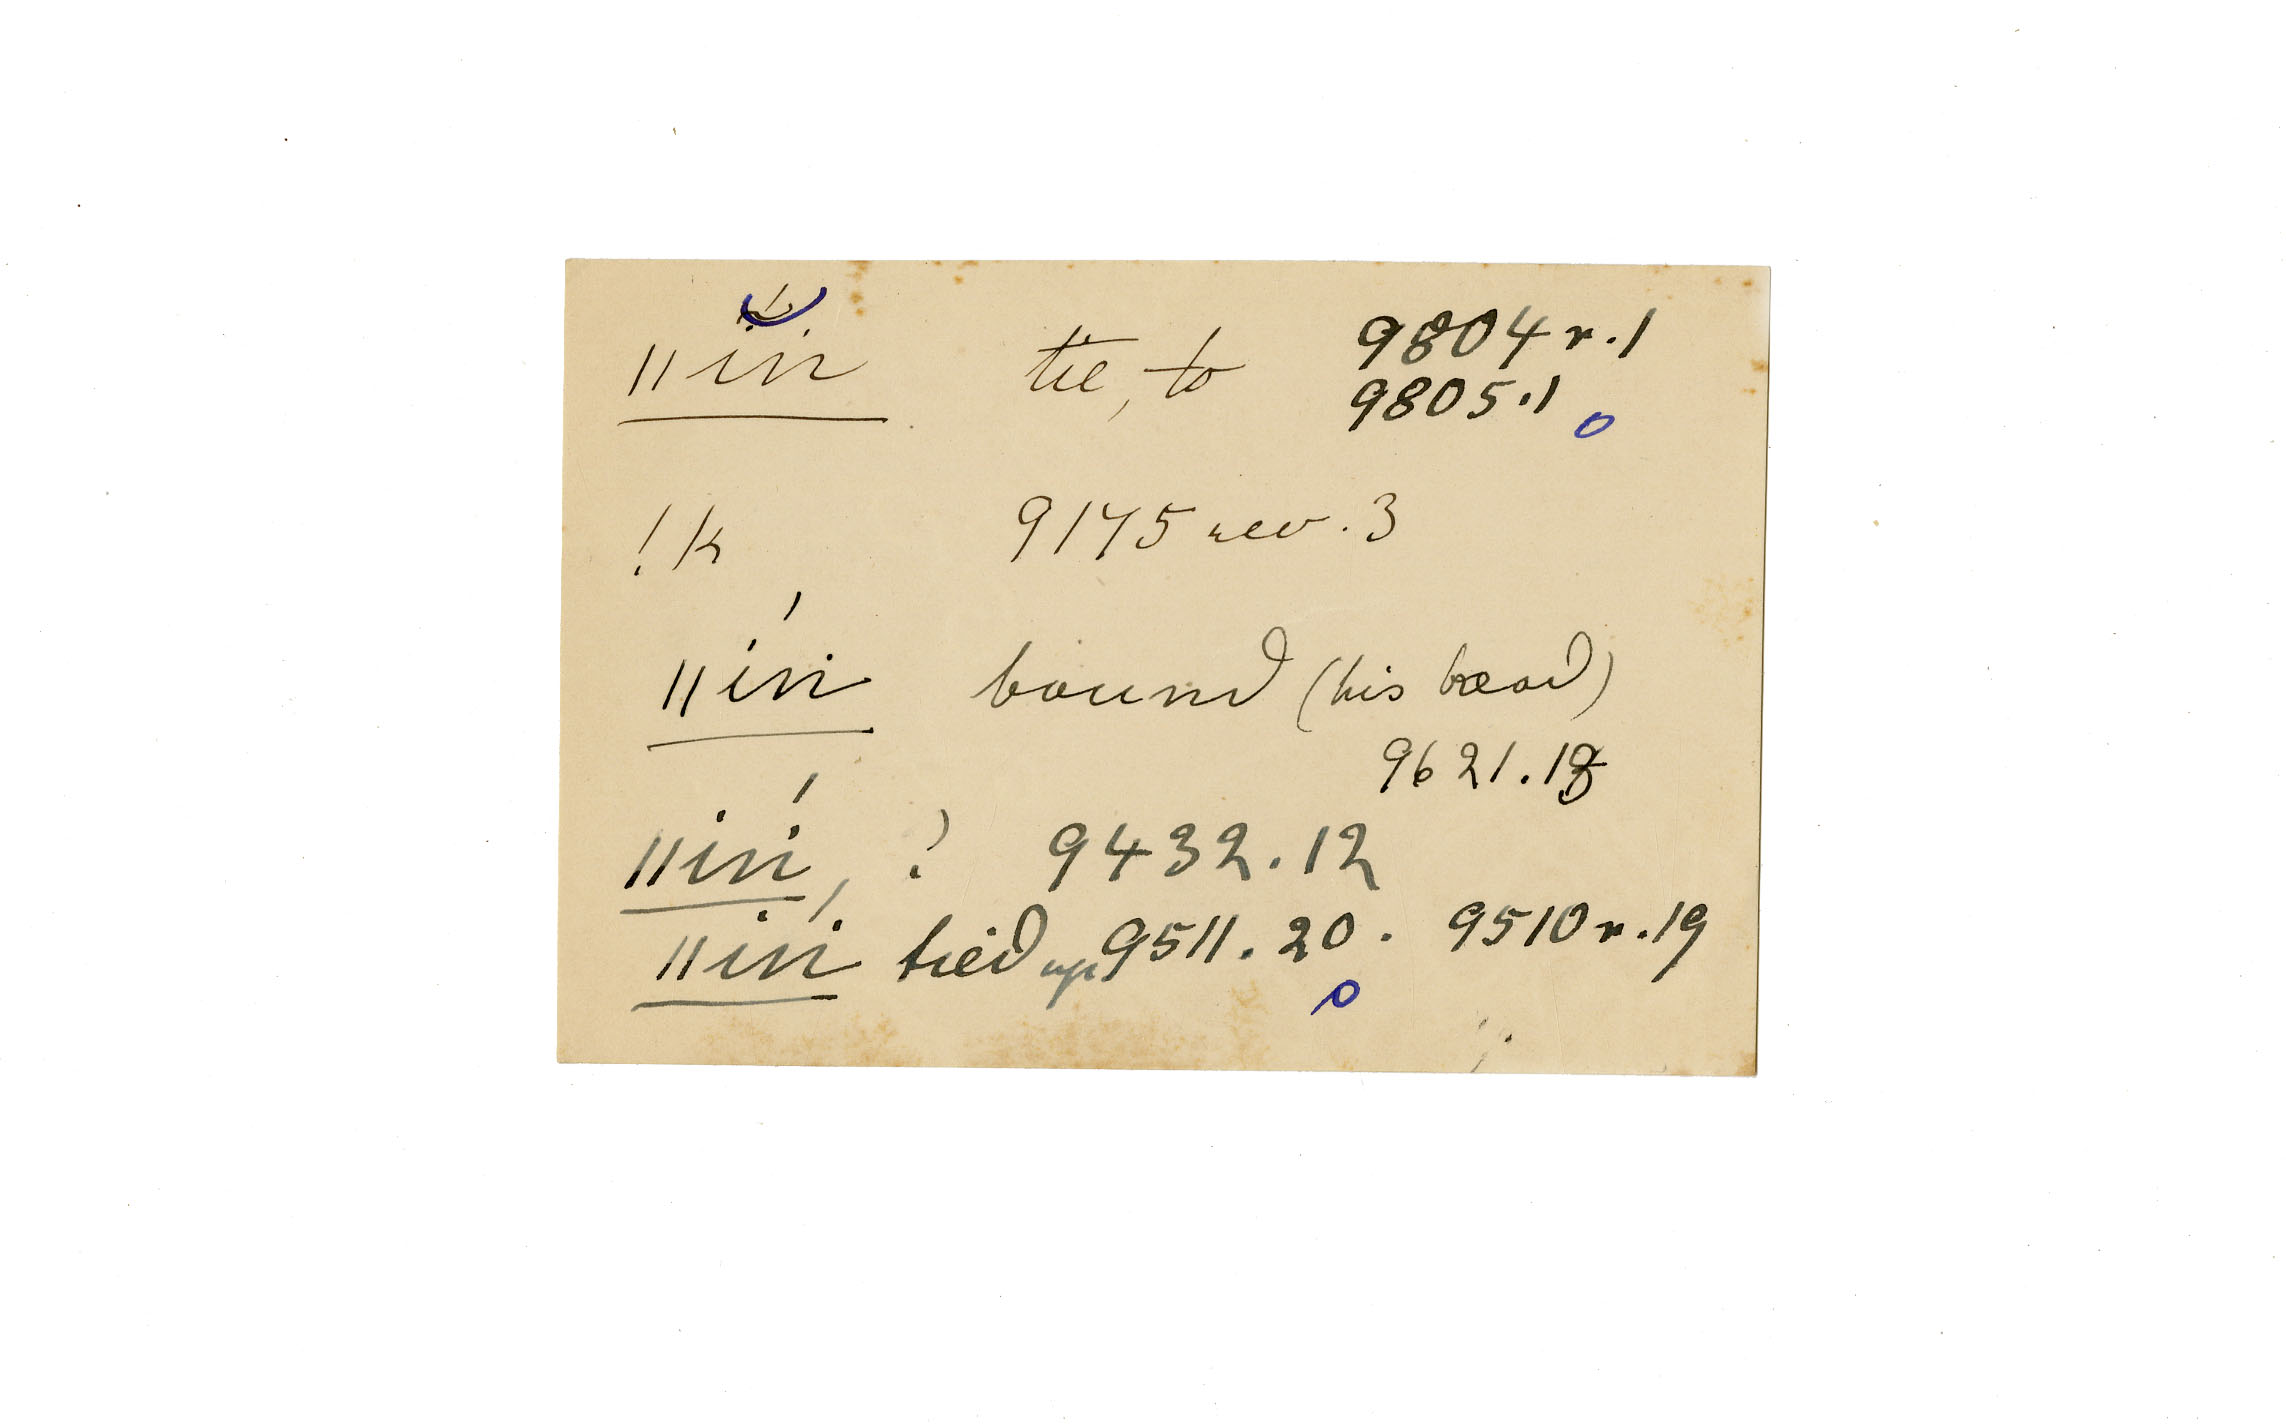 ǁin tie, to 9804 r.1
9805.1
!k 9175 rev. 3
ǁin bound (his head)
9621.18
ǁin, ? 9432.12
ǁin tied up 9511.20. 9510 r.19